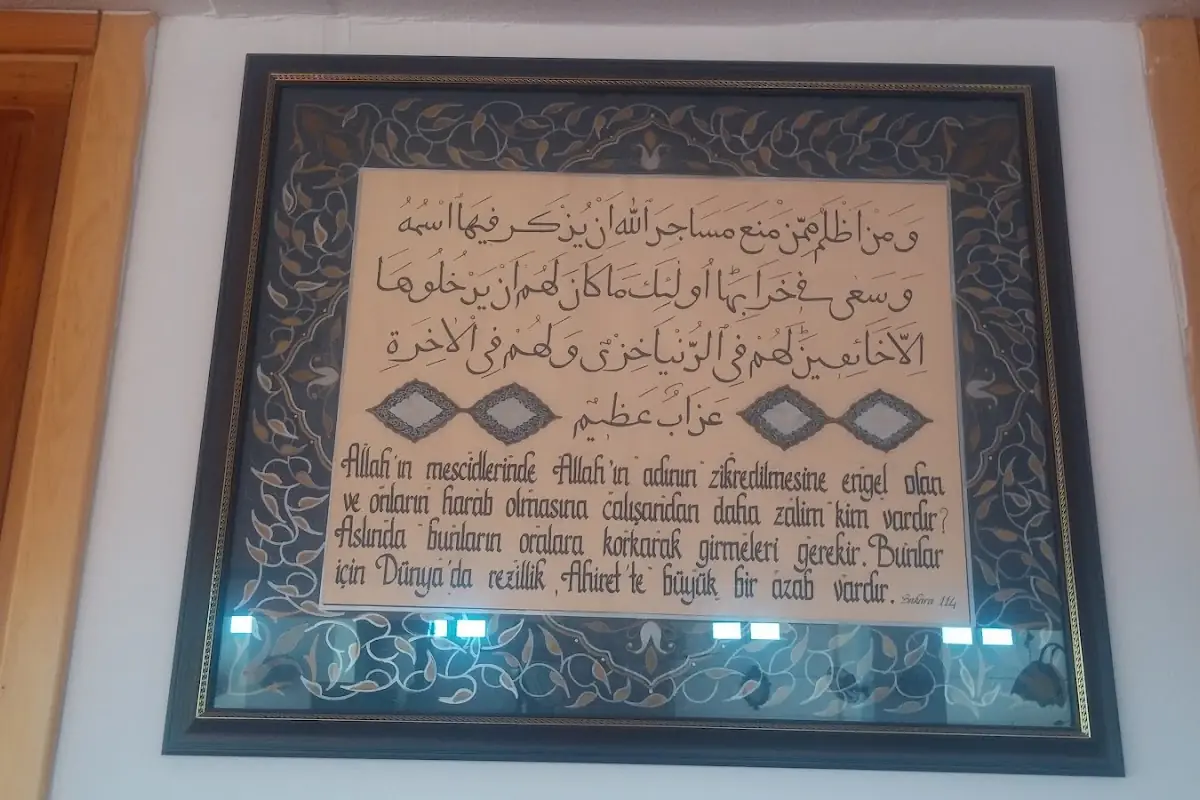 وَمَنْ اَظْلَمُ مِمَّنْ مَنَعَ مَسَاجِدَ ٱللّٰهِ اَنْ يُذْكَرَ فِيهَا ٱسْمُهُ
وَسَعٰى فِى خَرَابِهَا اُولٰئِكَ مَا كَانَ لَهُمْ اَنْ يَدْخُلُوهَا
اِلَّا خَائِفِينَ لَهُمْ فِى ٱلدُّنْيَا خِزْىٌ وَلَهُمْ فِى ٱلْاٰخِرَةِ
عَذَابٌ عَظِيمٌ
Allah'ın mescidlerinde Allah'ın adının zikredilmesine engel olan
ve onların harab olmasına çalışandan daha zâlim kim vardır?
Aslında bunların oralara korkarak girmeleri gerekir. Bunlar
için Dünya'da rezillik, Ahiret'te büyük bir azab vardır. Bakara 114